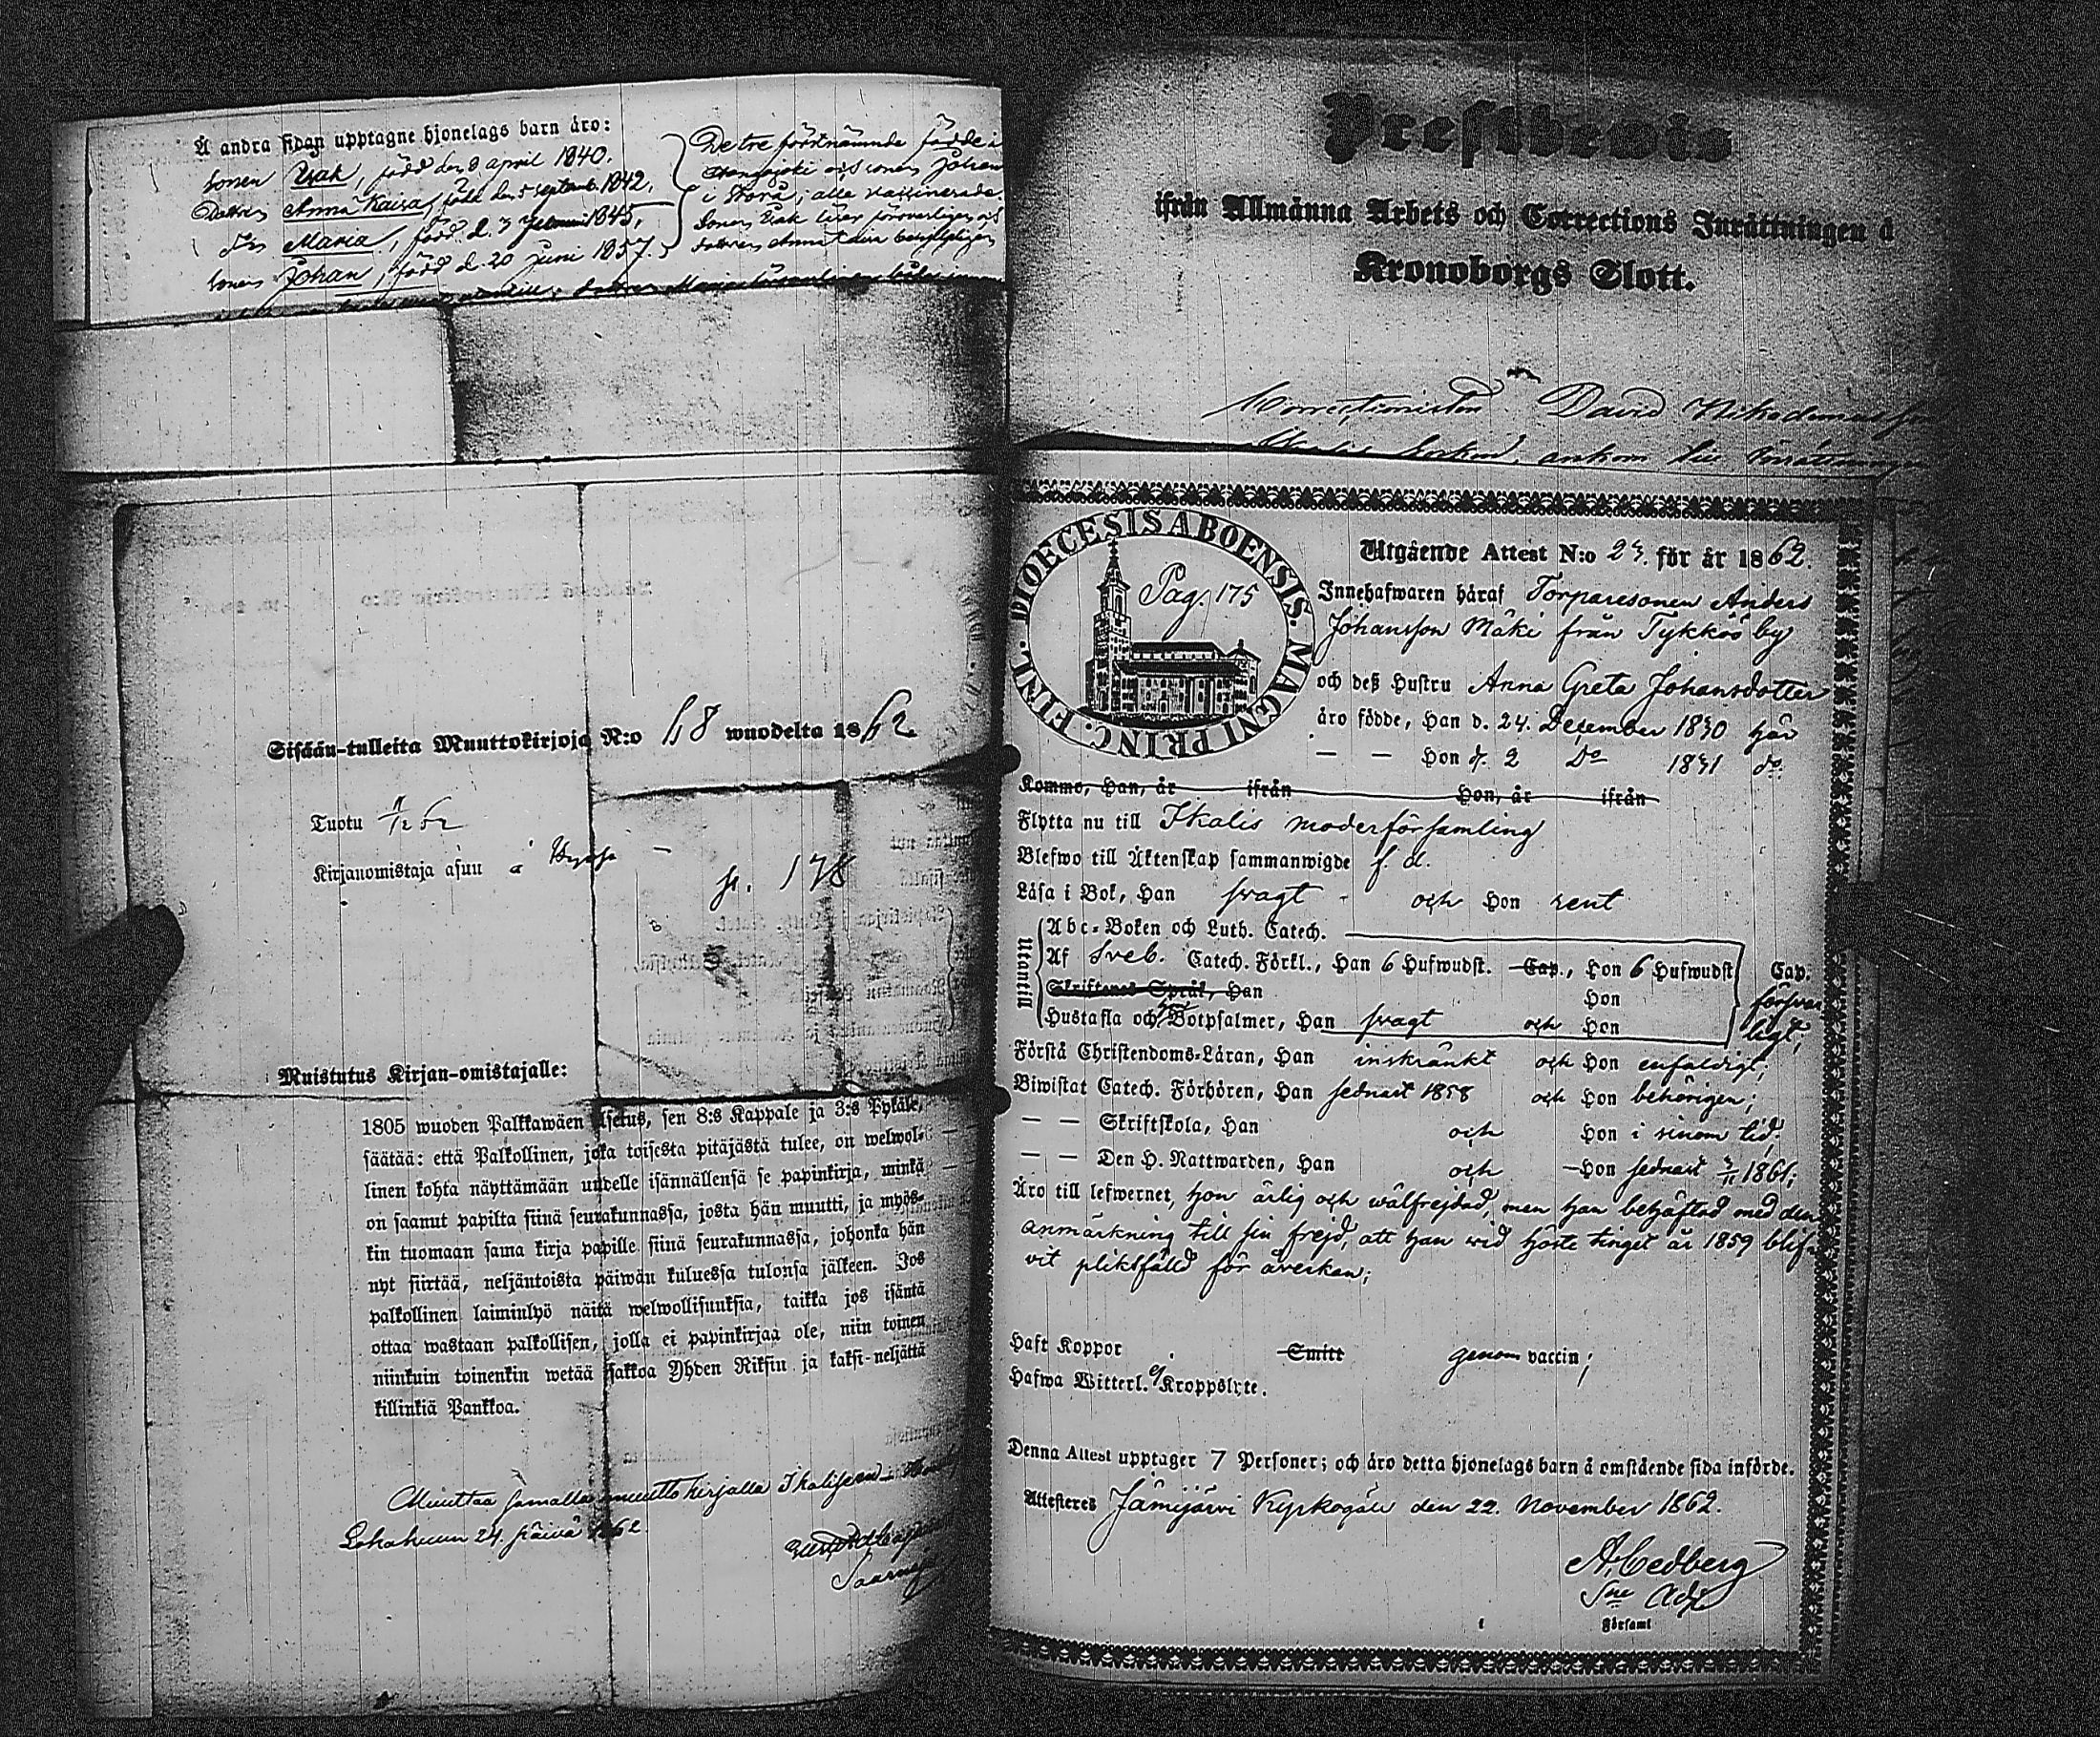 Å andra sidan upptagne hjonelags barn äro:
Sonen Isak, född den 8 april 1840.
Dottren Anna Kaisa, född den 5 septemb. 1842,
d:o Maria, född d. 3 1845,
Sonen Johan, född d. 20 juni 1857.
De tre förstnämnde födde i
och sonen Johan
i Storå; alla vaccinerade
Sonen Isak läser försvarligen och
dottren Anna Caisa behjelpligen
Sisään-tulleita Muuttokirjoja N:o 68 wuodelta 1862
Tuotu 1/12 62
Kirjanomistaja asuu
p. 178
Muistutus Kirjan-omistajalle:
1805 wuoden Palkkawäen Asetus, sen 8:s Kappale ja 3:s Pykälä,
säätää: että Palkollinen, joka toisesta pitäjästä tulee, on welwol-
linen kohta näyttämään uudelle isännällensä se papinkirja, minkä
on saanut papilta siinä seurakunnassa, josta hän muutti, ja myös-
kin tuomaan sama kirja papille siinä seurakunnassa, johonka hän
nyt siirtää, neljäntoista päiwän kuluessa tulonsa jälkeen. Jos
palkollinen laiminlyö näitä welwollisuuksia, taikka jos isäntä
ottaa wastaan palkollisen, jolla ei papinkirjaa ole, niin toinen
niinkuin toinenkin wetää sakkoa Yhden Riksin ja kaksi-neljättä
killinkiä Pankkoa.
Muuttaa samalla muutto kirjalla Ikaliseen
Lokakuun 24. päivä 1862.
Prestbewis
ifrån Allmänna Arbets och Corrections Inrättningen å
Kronoborgs Slott.
Correctionisten David Nikodemus
Ikalis Socken, ankom till Inrättningen
DIOECESIS ABOENSIS. MAGNI PRINC. FINL.
Pag. 175
Utgående Attest N:o 23. för år 1862.
Innehafwaren häraf Torparesonen Anders
Johansson Mäki från Tykköö by
och deß Hustru Anna Greta Johansdotter
äro födde, Han d. 24. December 1830 här
— — Hon d. 2 D:o 1831 d:o
Kommo, Han, år ifrån Hon, år ifrån
Flytta nu till Ikalis moderförsamling
Blefwo till Äktenskap sammanwigde f. d.
Läsa i Bok, Han svagt och Hon rent
Utantill
Abc-Boken och Luth. Catech.
Af Sveb. Catech. Förkl., Han 6 Hufwudst. Cap., Hon 6 Hufwudst. Cap.
Skriftenes Språk, Han Hon försvar
Hustafla och Botpsalmer, Han svagt och Hon ligt;
Förstå Christendoms-Läran, Han inskränkt och Hon enfaldigt;
Biwistat Catech. Förhören, Han sednast 1858 och Hon behörigen;
— — Skriftskola, Han och Hon i sinom tid.
— — Den H. Nattwarden, Han och Hon sednast 1861;
Äro till lefwernet, hon ärlig och wälfrejdad, men han behäftad med den
anmärkning till sin frejd, att han wid höste tinget år 1859 blif-
vit pliktfälld för åverkan;
Haft Koppor Smitt genom vaccin;
Hafwa Witterl. ej Kroppslyte.
Denna Attest upptager 7 Personer; och äro detta hjonelags barn å omstående sida införde.
Attesteres Jämijärvi Kyrkogård den 22. November 1862.
A. Cedberg
Sne Adj
Församl